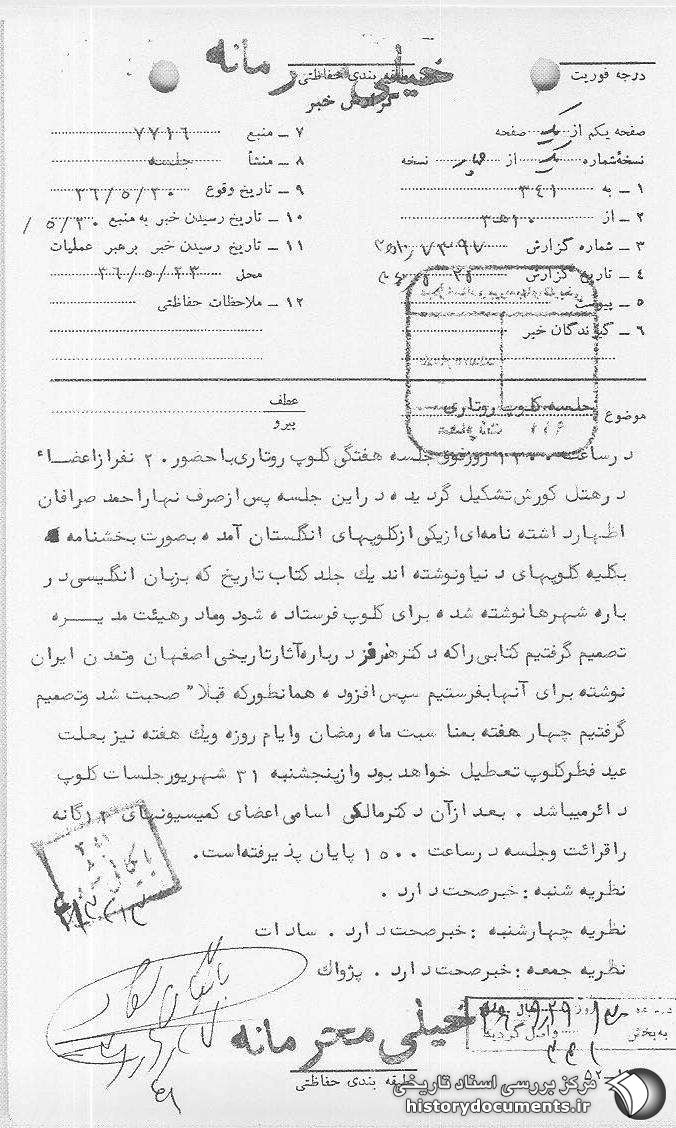 خیلی محرمانه
طبقه بندی حفاظتی
درجه فوریت
گزارش خبر
صفحه یکم از یک صفحه
نسخهٔ شماره یک از چهار نسخه
۱ ـ به ۳۴۱
۲ ـ از ۱۰ه۳
۳ ـ شماره گزارش ۷۳۹۷/
۴ ـ تاریخ گزارش
۵ ـ پیوست
۶ ـ گیرندگان خبر
۷ ـ منبع ۷۷۱۶
۸ ـ منشأ جلسه
۹ ـ تاریخ وقوع ۳۶/۵/۲۰
۱۰ ـ تاریخ رسیدن خبر به منبع ۵/۲۰/
۱۱ ـ تاریخ رسیدن خبر برهبر عملیات
محل ۳۶/۵/۲۳
۱۲ ـ ملاحظات حفاظتی
موضوع جلسه کلوپ روتاری
عطف
پیرو
درساعت ۱۳۰۰ روزفوق جلسه هفتگی کلوپ روتاری باحضور ۲۰ نفرازاعضاء
درهتل کورش تشکیل گردیده دراین جلسه پس ازصرف نهاراحمد صرافان
اظهارداشته نامه ای ازیکی ازکلوپهای انگلستان آمده بصورت بخشنامه که
بکلیه کلوپهای دنیا ونوشته اند یك جلد کتاب تاریخ که بزبان انگلیسی در
باره شهرها نوشته شده برای کلوپ فرستاده شود ومادرهیئت مدیره
تصمیم گرفتیم کتابی راکه دکترهنرفر درباره آثارتاریخی اصفهان وتمدن ایران
نوشته برای آنها بفرستیم سپس افزوده همانطورکه قبلا" صحبت شد وتصمیم
گرفتیم چهار هفته بمناسبت ماه رمضان وایام روزه ویك هفته نیز بعلت
عید فطرکلوپ تعطیل خواهد بود وازپنجشنبه ۳۱ شهریورجلسات کلوپ
دائرمیباشد . بعد ازآن دکترمالکی اسامی اعضای کمیسیونهای رگانه
راقرائت وجلسه درساعت ۱۵۰۰ پایان پذیرفته است.
نظریه شنبه : خبرصحت دارد .
نظریه چهارشنبه : خبرصحت دارد . سادات
نظریه جمعه : خبرصحت دارد . پژواك
خیلی محرمانه
طبقه بندی حفاظتی
واصل گردید
به بخش
۳۴۱
۴۱
مرکز بررسی اسناد تاریخی
historydocuments.ir